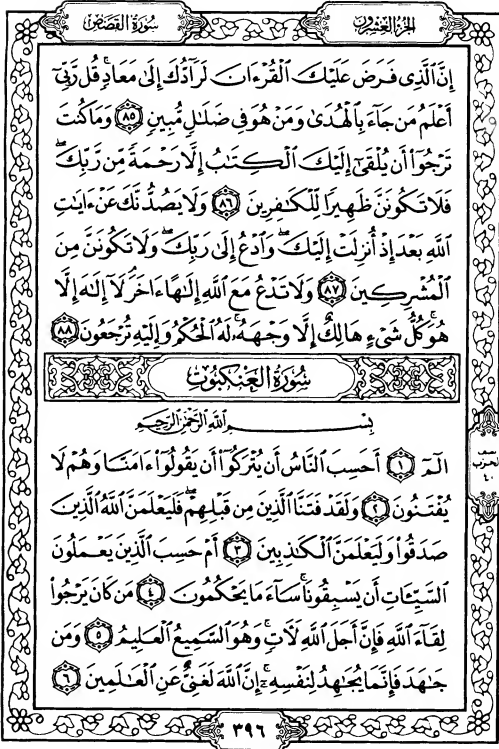 سُورَةُ القَصَصِ
الجُزْءُ العِشْرُونَ
إِنَّ ٱلَّذِى فَرَضَ عَلَيْكَ ٱلْقُرْءَانَ لَرَآدُّكَ إِلَىٰ مَعَادٍ ۚ قُل رَّبِّىٓ
أَعْلَمُ مَن جَآءَ بِٱلْهُدَىٰ وَمَنْ هُوَ فِى ضَلَـٰلٍ مُّبِينٍ ٨٥ وَمَا كُنتَ
تَرْجُوٓا۟ أَن يُلْقَىٰٓ إِلَيْكَ ٱلْكِتَـٰبُ إِلَّا رَحْمَةً مِّن رَّبِّكَ ۖ
فَلَا تَكُونَنَّ ظَهِيرًا لِّلْكَـٰفِرِينَ ٨٦ وَلَا يَصُدُّنَّكَ عَنْ ءَايَـٰتِ
ٱللَّهِ بَعْدَ إِذْ أُنزِلَتْ إِلَيْكَ ۖ وَٱدْعُ إِلَىٰ رَبِّكَ ۖ وَلَا تَكُونَنَّ مِنَ
ٱلْمُشْرِكِينَ ٨٧ وَلَا تَدْعُ مَعَ ٱللَّهِ إِلَـٰهًا ءَاخَرَ ۘ لَآ إِلَـٰهَ إِلَّا
هُوَ ۚ كُلُّ شَىْءٍ هَالِكٌ إِلَّا وَجْهَهُۥ ۚ لَهُ ٱلْحُكْمُ وَإِلَيْهِ تُرْجَعُونَ ٨٨
سُورَةُ العَنكَبُوتِ
بِسْمِ ٱللَّهِ ٱلرَّحْمَـٰنِ ٱلرَّحِيمِ
الٓمٓ ١ أَحَسِبَ ٱلنَّاسُ أَن يُتْرَكُوٓا۟ أَن يَقُولُوٓا۟ ءَامَنَّا وَهُمْ لَا
يُفْتَنُونَ ٢ وَلَقَدْ فَتَنَّا ٱلَّذِينَ مِن قَبْلِهِمْ ۖ فَلَيَعْلَمَنَّ ٱللَّهُ ٱلَّذِينَ
صَدَقُوا۟ وَلَيَعْلَمَنَّ ٱلْكَـٰذِبِينَ ٣ أَمْ حَسِبَ ٱلَّذِينَ يَعْمَلُونَ
ٱلسَّيِّـَٔاتِ أَن يَسْبِقُونَا ۚ سَآءَ مَا يَحْكُمُونَ ٤ مَن كَانَ يَرْجُوا۟
لِقَآءَ ٱللَّهِ فَإِنَّ أَجَلَ ٱللَّهِ لَـَٔاتٍ ۚ وَهُوَ ٱلسَّمِيعُ ٱلْعَلِيمُ ٥ وَمَن
جَـٰهَدَ فَإِنَّمَا يُجَـٰهِدُ لِنَفْسِهِۦٓ ۚ إِنَّ ٱللَّهَ لَغَنِىٌّ عَنِ ٱلْعَـٰلَمِينَ ٦
نصف
الحزب
٤٠
٣٩٦